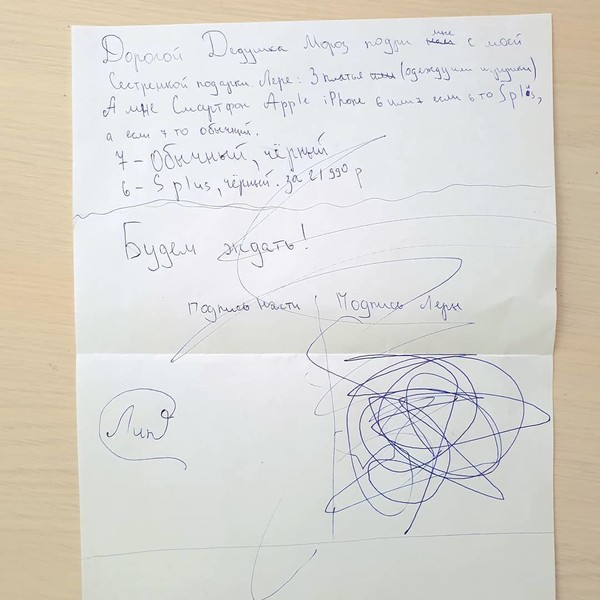 Дорогой Дедушка Мороз подри мне с моей
Сестренкой подарки Лере: 3 платье (одежду им игрушки)
А мне Смартфон Apple iPhone 6 или 7 если 6 то S plus,
а если 7 то обычный.
7 - Обычный, чёрный
6 - S plus, чёрный. за 21 990 р
Будем ждать!
Подпись Насти Подпись Леры